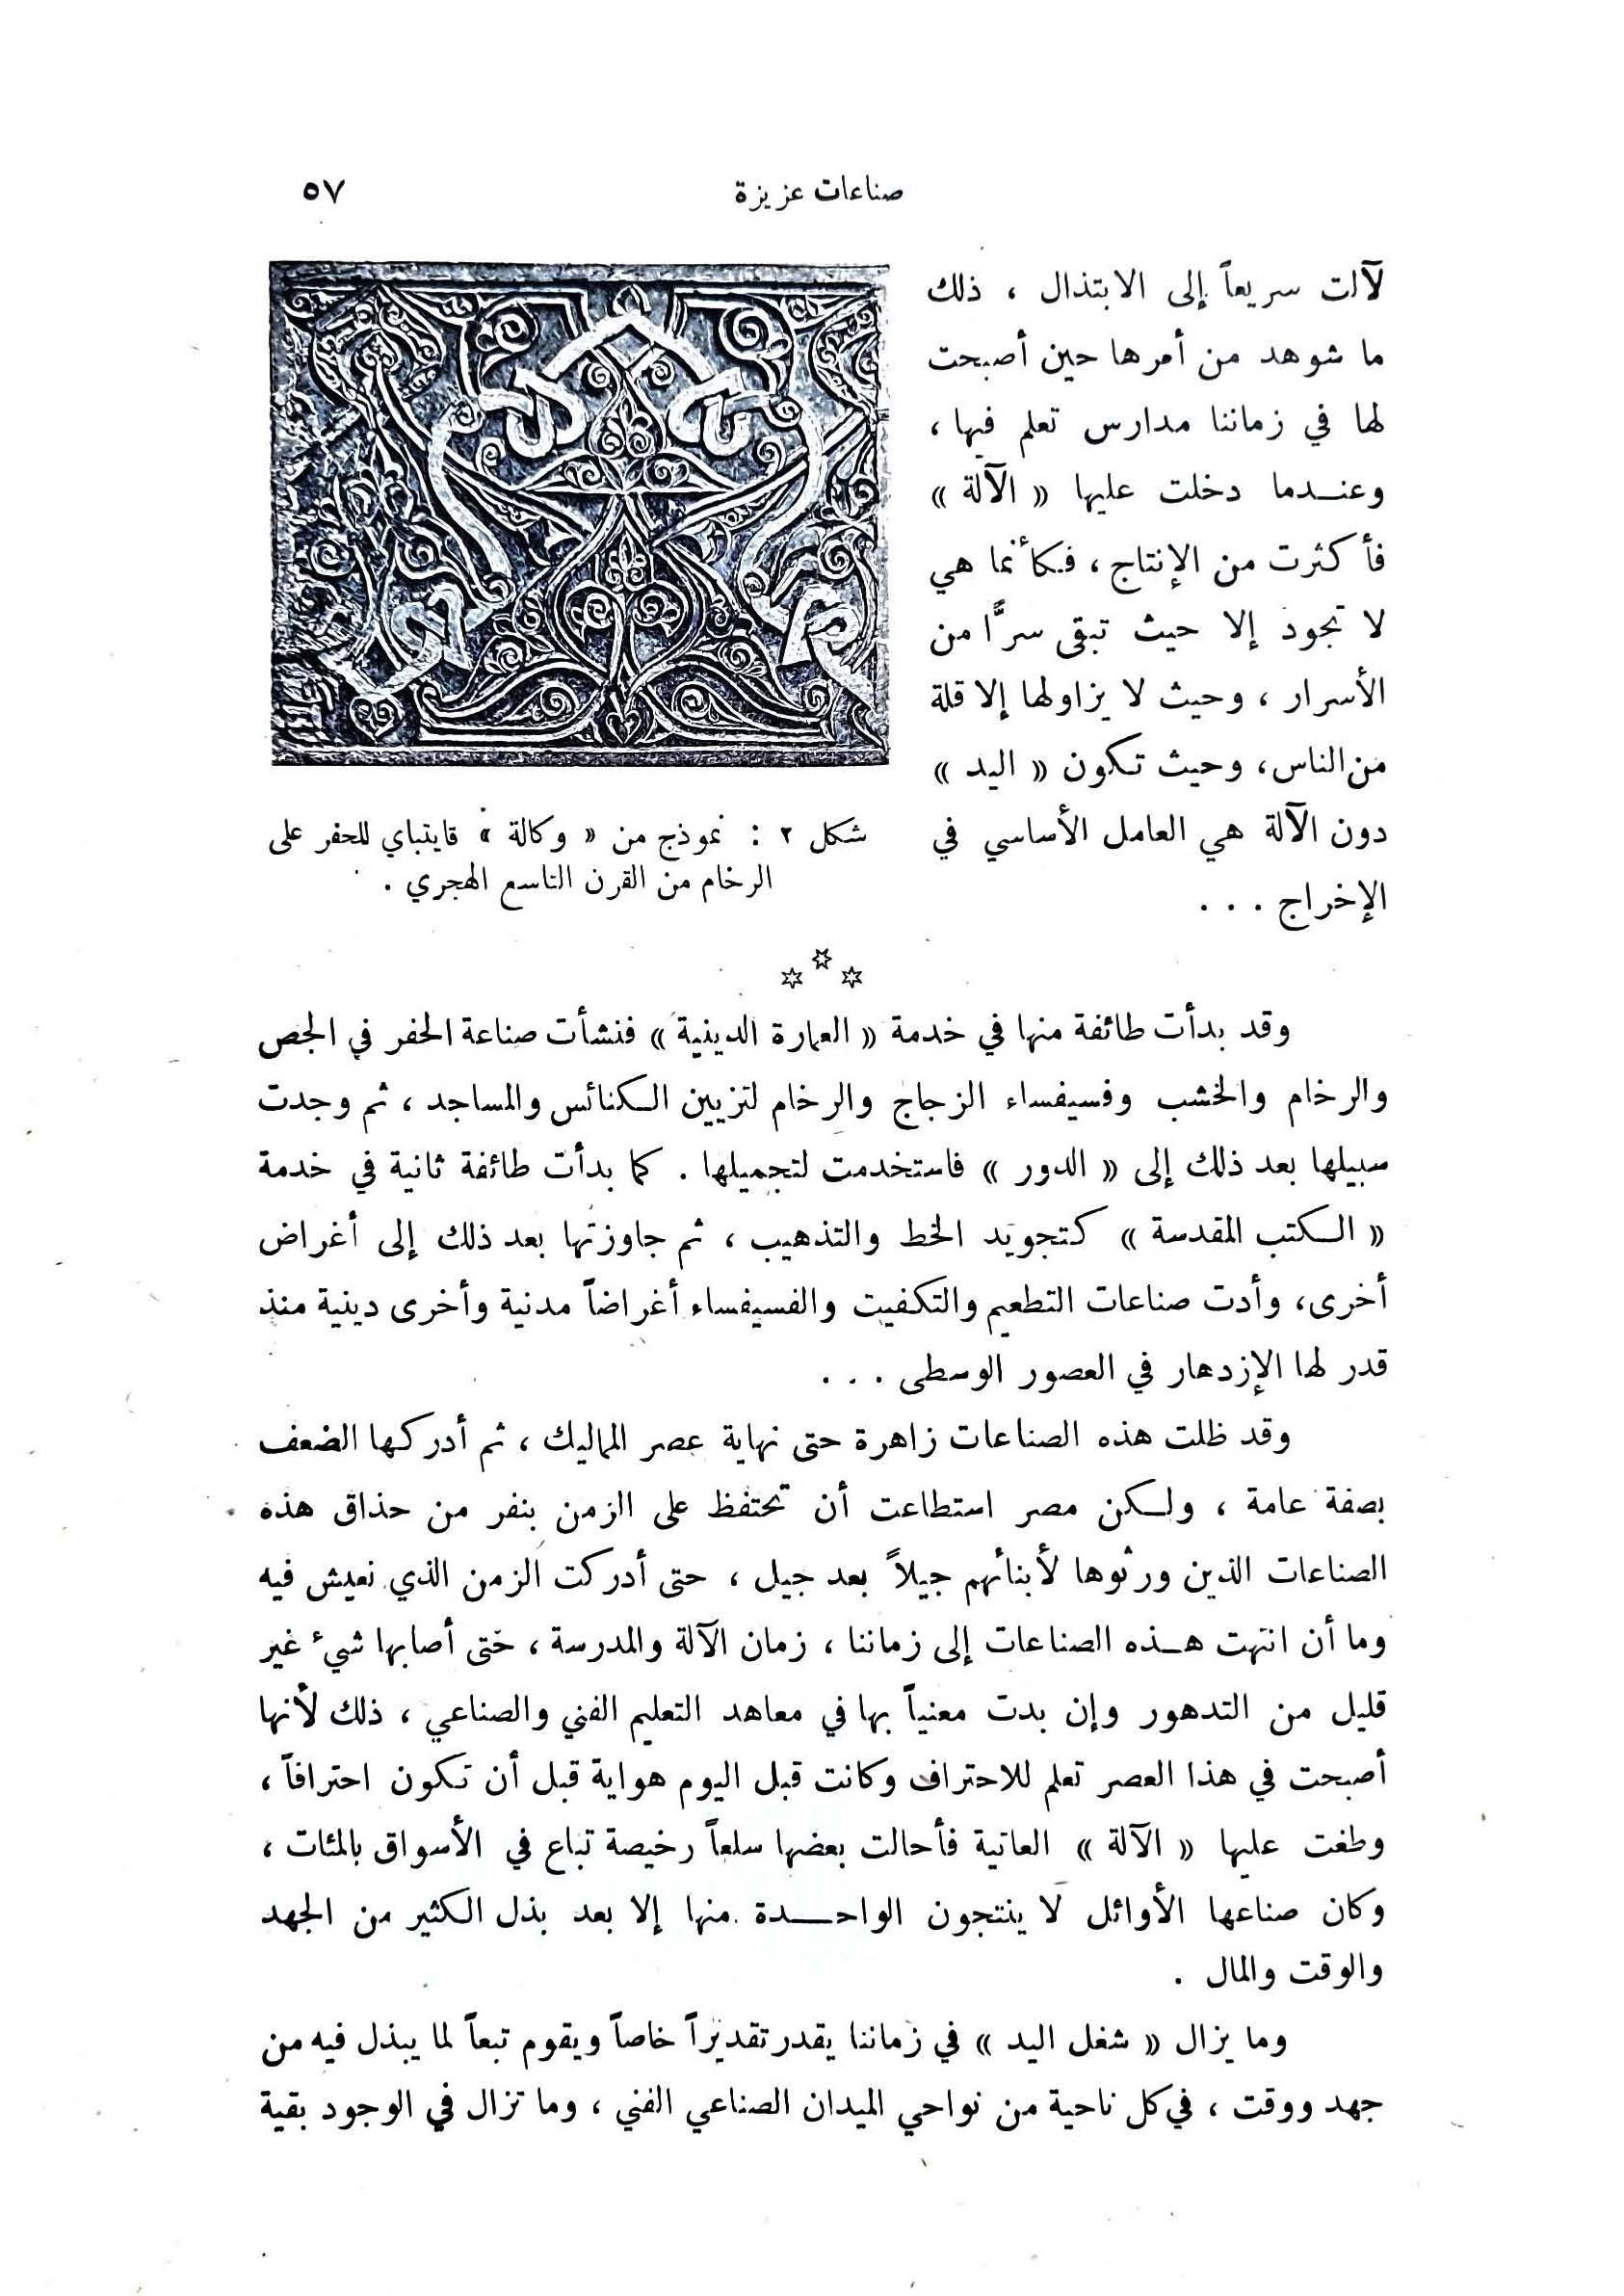 صناعات عزيزة
٥٧
لآلت سريعاً إلى الابتذال ، ذلك
ما شوهد من أمرها حين أصبحت
لها في زماننا مدارس تعلم فيها ،
وعندما دخلت عليها « الآلة »
فأكثرت من الإنتاج ، فكأنما هي
لا تجود إلا حيث تبقى سرًّا من
الأسرار ، وحيث لا يزاولها إلا قلة
من الناس، وحيث تكون « اليد »
دون الآلة هي العامل الأساسي في
الإخراج . . .
شكل ٢ : نموذج من « وكالة » قايتباي للحفر على
الرخام من القرن التاسع الهجري .
وقد بدأت طائفة منها في خدمة « العمارة الدينية » فنشأت صناعة الحفر في الجص
والرخام والخشب وفسيفساء الزجاج والرخام لتزيين الكنائس والمساجد ، ثم وجدت
سبيلها بعد ذلك إلى « الدور » فاستخدمت لتجميلها . كما بدأت طائفة ثانية في خدمة
« الكتب المقدسة » كتجويد الخط والتذهيب ، ثم جاوزتها بعد ذلك إلى أغراض
أخرى، وأدت صناعات التطعيم والتكفيت والفسيفساء أغراضاً مدنية وأخرى دينية منذ
قدر لها الإزدهار في العصور الوسطى . . .
وقد ظلت هذه الصناعات زاهرة حتى نهاية عصر المماليك ، ثم أدركها الضعف
بصفة عامة ، ولكن مصر استطاعت أن تحتفظ على الزمن بنفر من حذاق هذه
الصناعات الذين ورثوها لأبنائهم جيلاً بعد جيل ، حتى أدركت الزمن الذي نعيش فيه
وما أن انتهت هذه الصناعات إلى زماننا ، زمان الآلة والمدرسة ، حتى أصابها شيء غير
قليل من التدهور وإن بدت معنياً بها في معاهد التعليم الفني والصناعي ، ذلك لأنها
أصبحت في هذا العصر تعلم للاحتراف وكانت قبل اليوم هواية قبل أن تكون احترافاً ،
وطغت عليها « الآلة » العاتية فأحالت بعضها سلعاً رخيصة تباع في الأسواق بالمئات ،
وكان صناعها الأوائل لا ينتجون الواحدة منها إلا بعد بذل الكثير من الجهد
والوقت والمال .
وما يزال « شغل اليد » في زماننا يقدر تقديراً خاصاً ويقوم تبعاً لما يبذل فيه من
جهد ووقت ، في كل ناحية من نواحي الميدان الصناعي الفني ، وما تزال في الوجود بقية